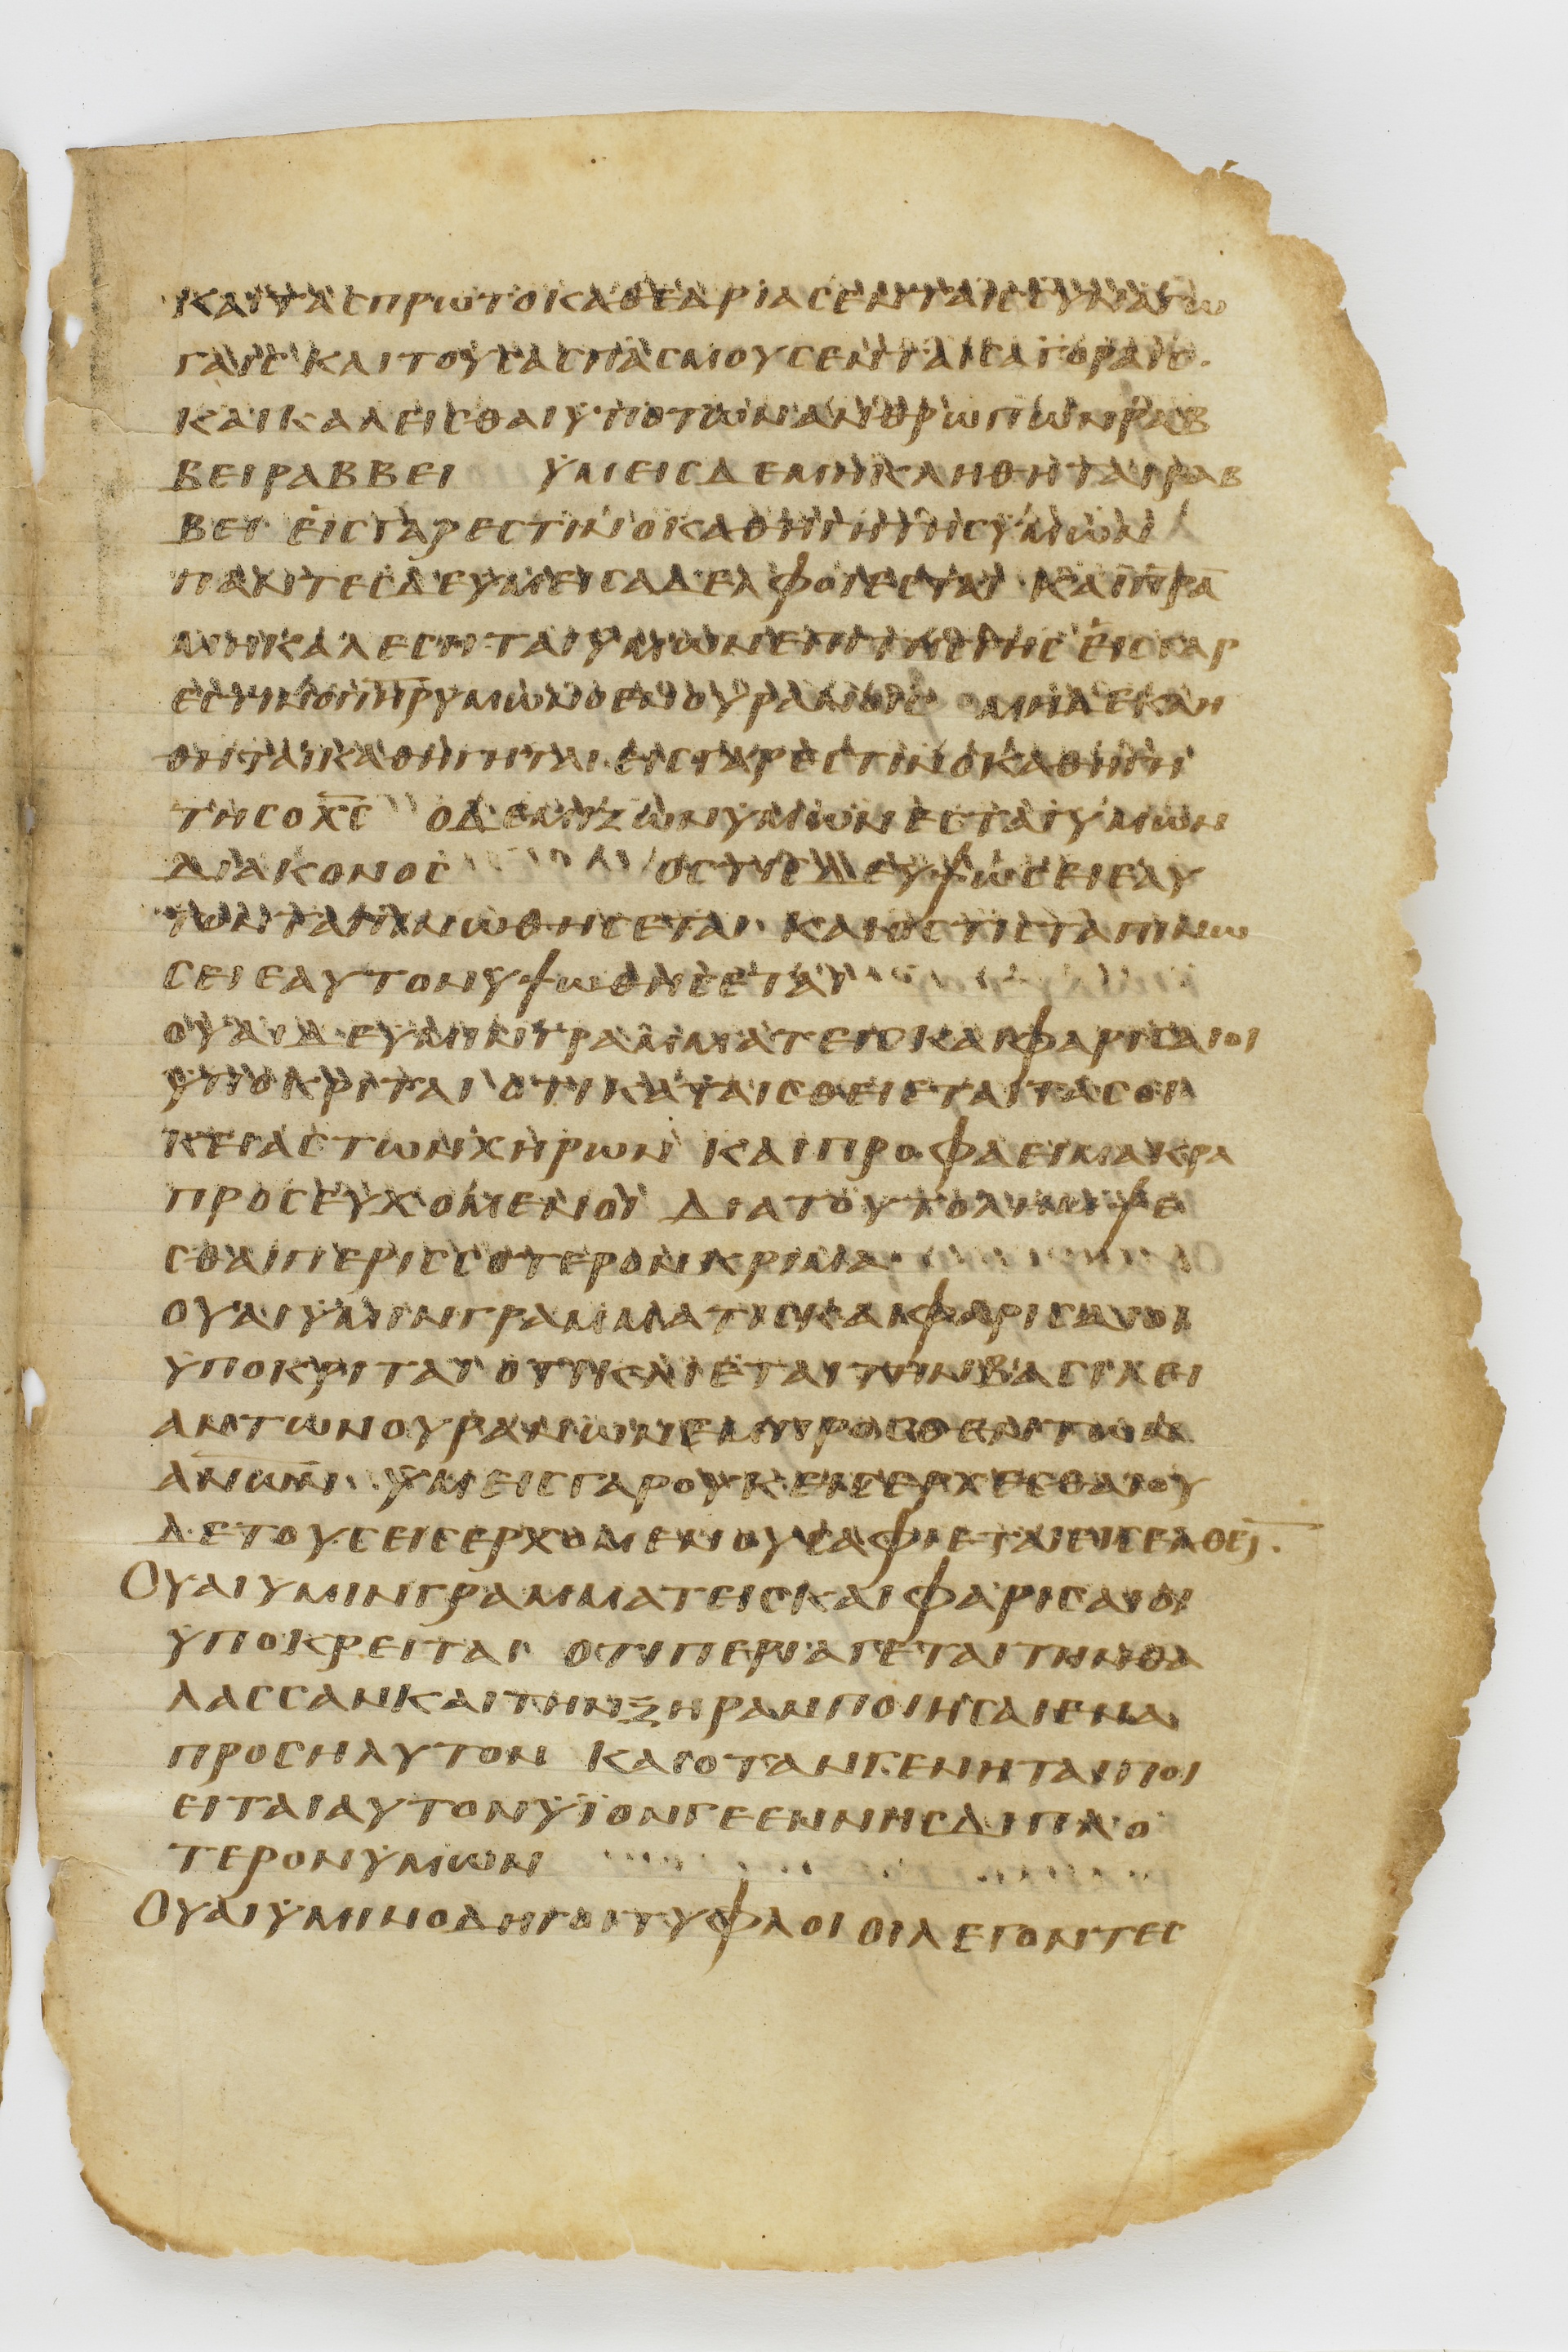 και τας πρωτοκαθεδριας εν ταις συναγω
γαις και τους ασπασμους εν ταις αγοραις·
και καλεισθαι ϋπο των ανθρωπων ραβ
βει ραββει ϋμεις δε μη κληθηται ραβ
βει· εις γαρ εστιν ο καθηγητης ϋμων
παντες δε υμεις αδελφοι εσται· και π̅ρ̅α̅
μη καλεσηται υμων επι της γης εις γαρ
εστιν ο π̅η̅ρ̅ υμων ο εν ουρανοις μηδε κλη
θηται καθηγηται· εις γαρ εστιν ο καθηγη
της ο χ̅ς̅ ο δε μιζων υμων εσται ϋμων
διακονος οστις δε υψωσει εαυ
τον ταπινωθησεται· και οστις ταπινω
σει εαυτον υψωθησεται
ουαι δε υμιν γραμματεις και φαρισαιοι
υποκριται οτι καταισθειεται τας οι
κειας των χηρων και προφασει μακρα
προσευχομενοι δια τουτο λημψε
σθαι περισσοτερον κριμα
ουαι υμιν γραμματις και φαρισαιοι
ϋποκριται οτι κλιεται την βασιλει
αν των ουρανων εμπροσθεν των
α̅ν̅ω̅ν̅ ϋμεις γαρ ουκ εισερχεσθαι ου
δε τους εισερχομενους αφιεται εισελθει̅·
Ουαι υμιν γραμματεις και φαρισαιοι
υποκρειται οτι περιαγεται την θα
λασσαν και την ξηραν ποιησαι ενα
προσηλυτον και οταν γενηται ποι
ειται αυτον ϋϊον γεεννης διπλο
τερον υμων
Ουαι υμιν οδηγοι τυφλοι οι λεγοντες